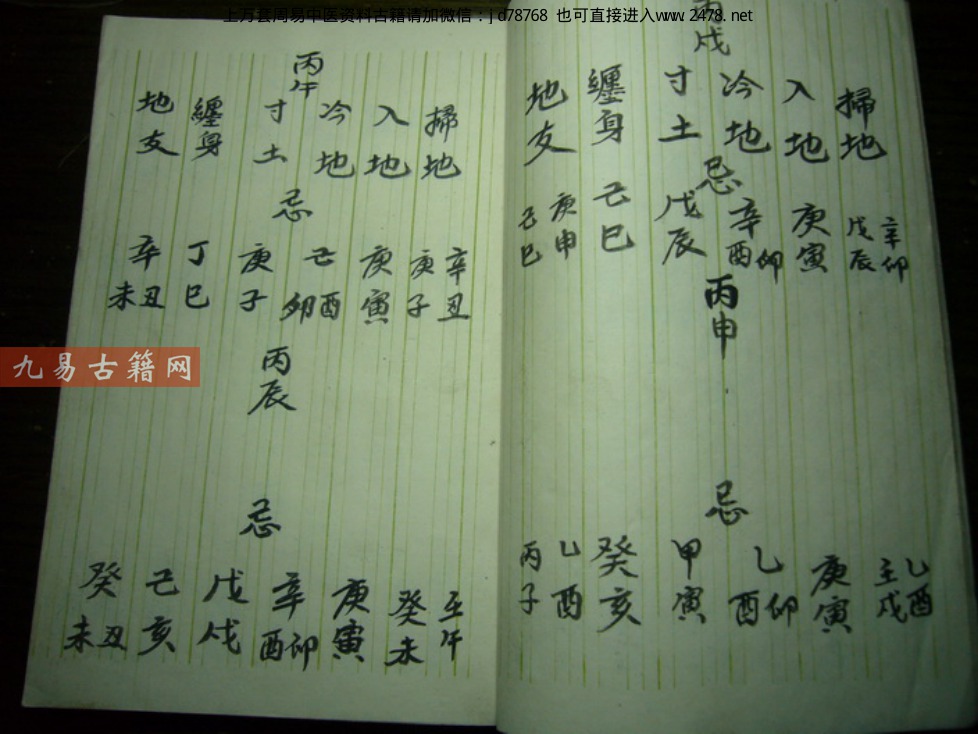 上万套周易中医资料古籍请加微信：jd78768 也可直接进入www.2478.net
丙戌
掃地
入地
冷地
寸土
纏身
地支
忌
辛卯
戊辰
庚寅
辛酉卯
戊辰
己巳
庚申
己巳
丙申
忌
乙酉
壬戌
庚寅
乙酉卯
甲寅
癸亥
乙酉
丙子
丙午
掃地
入地
冷地
寸土
纏身
地支
忌
辛丑
庚子
庚寅
己酉卯
庚子
丁巳
辛丑未
丙辰
忌
壬午
癸未
庚寅
辛卯酉
戊戌
己亥
癸丑未
九易古籍网